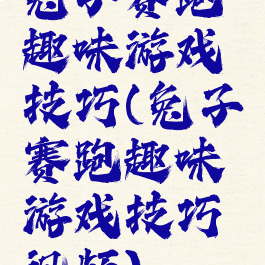 兔子赛跑
趣味游戏
技巧(兔子
赛跑趣味
游戏技巧
视频)